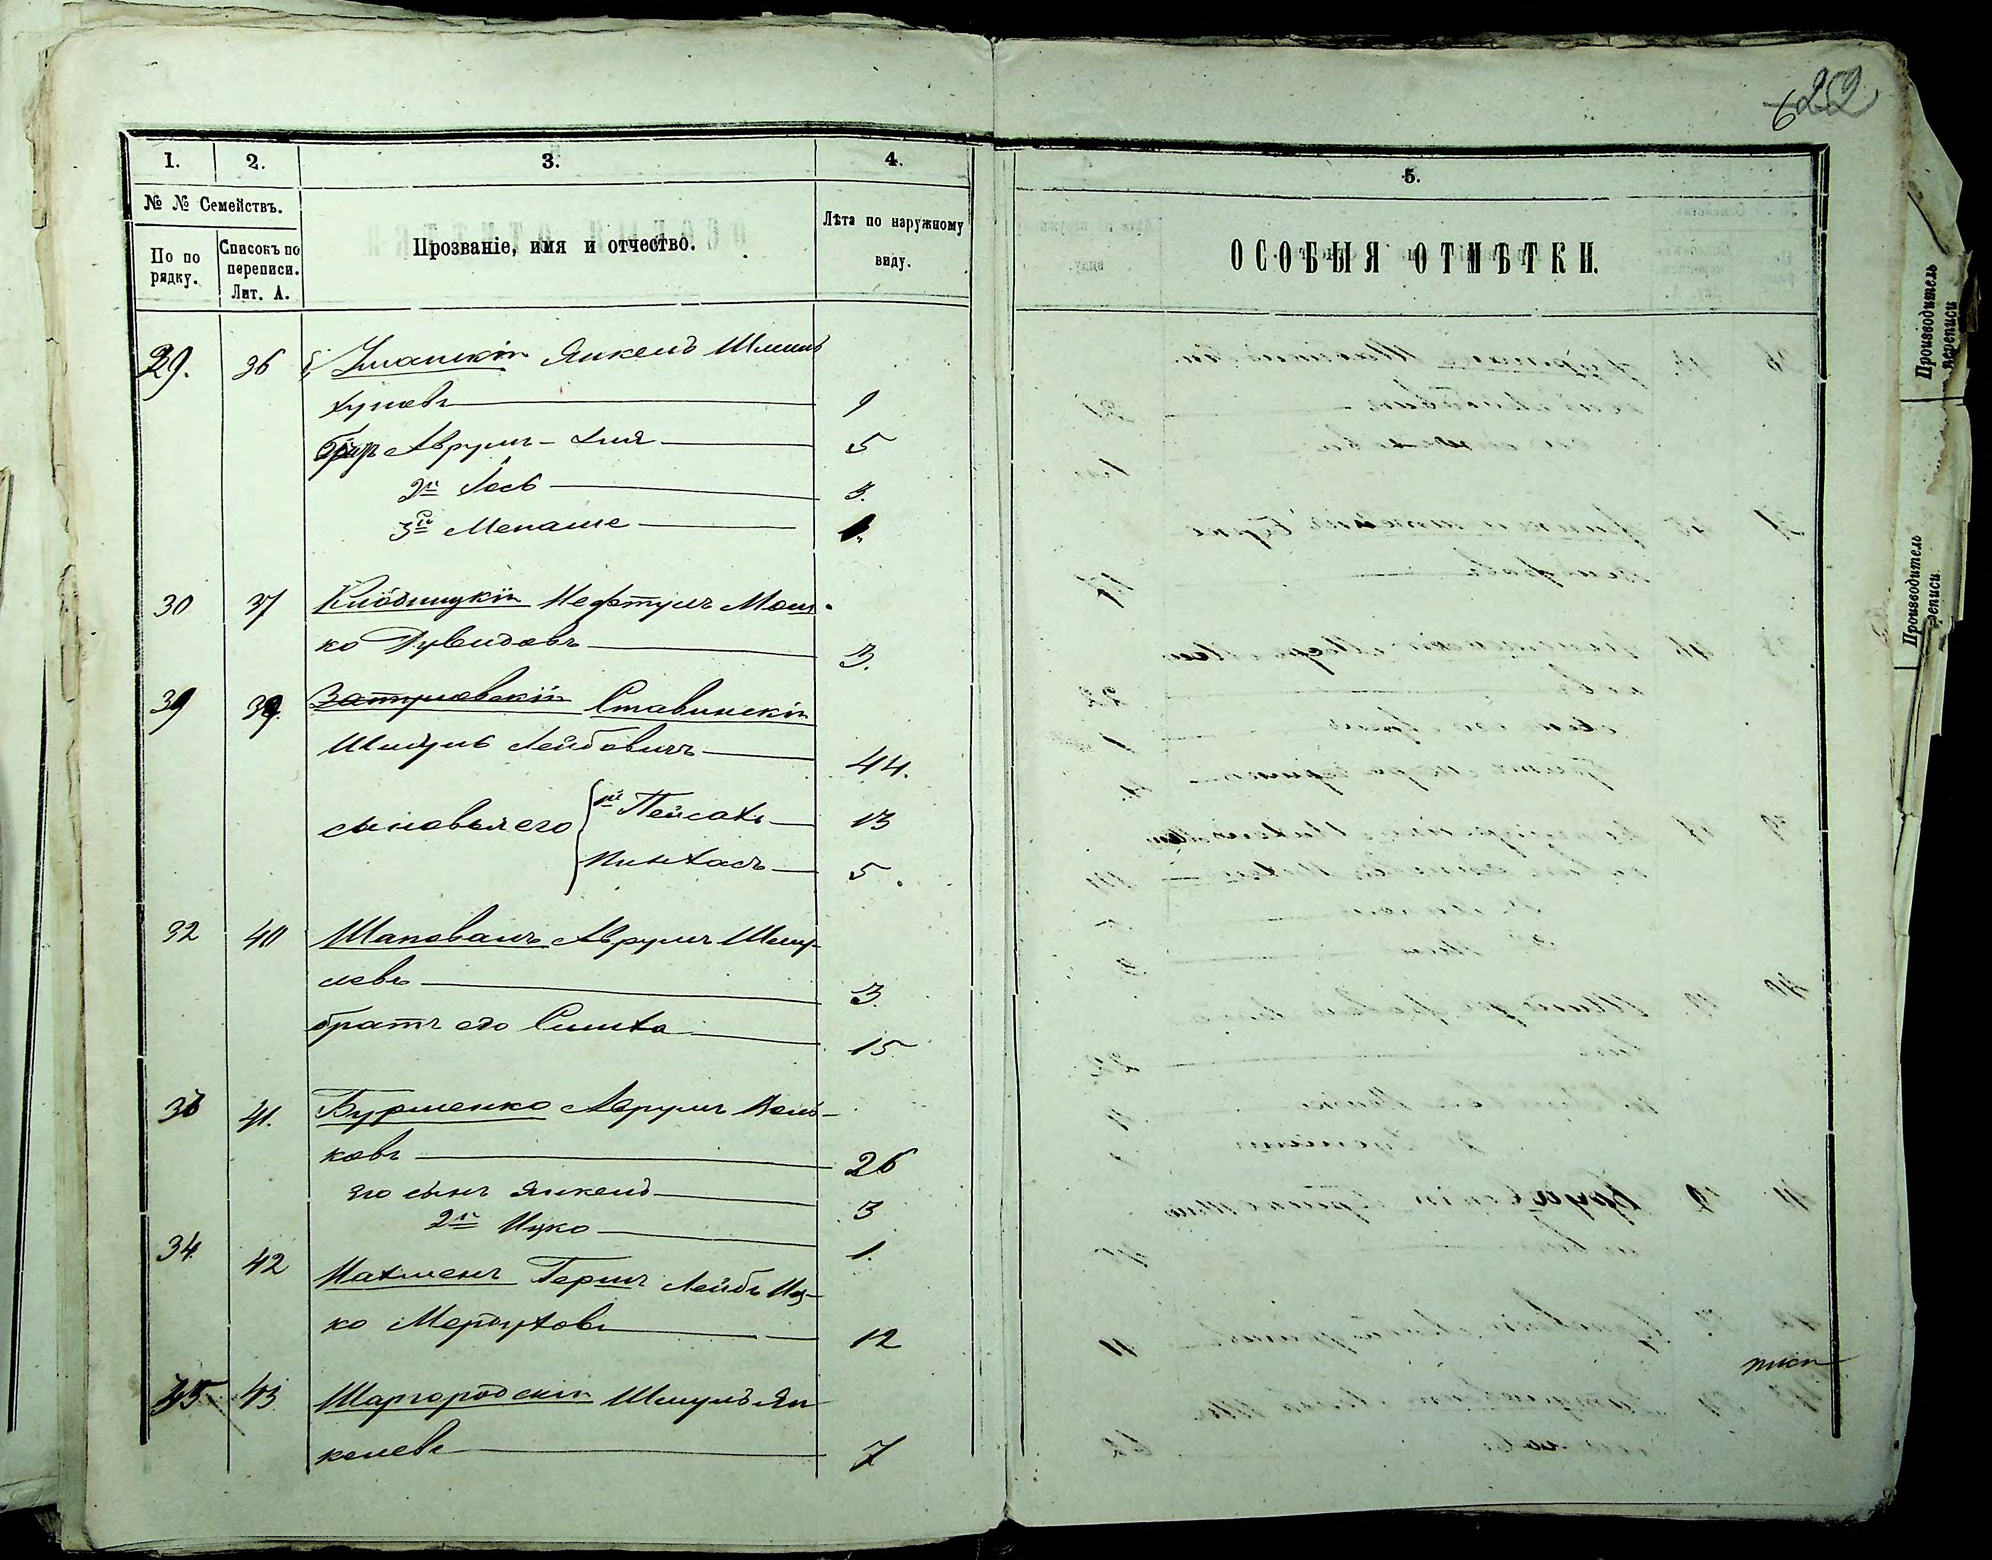 622
1. 2. 3. 4. 5.
№ № Семействъ.
По по рядку.
Списокъ по переписи. Лит. А.
Прозваніе, имя и отчество.
Лѣта по наружному виду.
ОСОБЫЯ ОТМѢТКИ.
29. 36 Уманскій Янкель Шмиль
Хуновъ 9
Аврумъ-Хия 5
2й Іось 3.
3й Менаше 1.
30 37 Нефтулъ Мош-
ко Дувидовъ 3.
31 39. Затуловскій Ставинскій
Шмуль Лейбовичъ 44.
сыновья его 1й Пейсахъ 13
Пинхасъ 5.
32 40 Шаповалъ Аврумъ Шму-
левъ 3.
братъ его Симха 15
33 41. Бурменко Аврумъ Воль-
ковъ 26
его сынъ Янкель 3
2й Ицко 1.
34. 42 Нахменъ Гершъ Лейбъ Иц-
ко 12
35 43 Шаргородскій Шмуль Ян
келевъ 7
Производитель переписи
Производитель переписи.